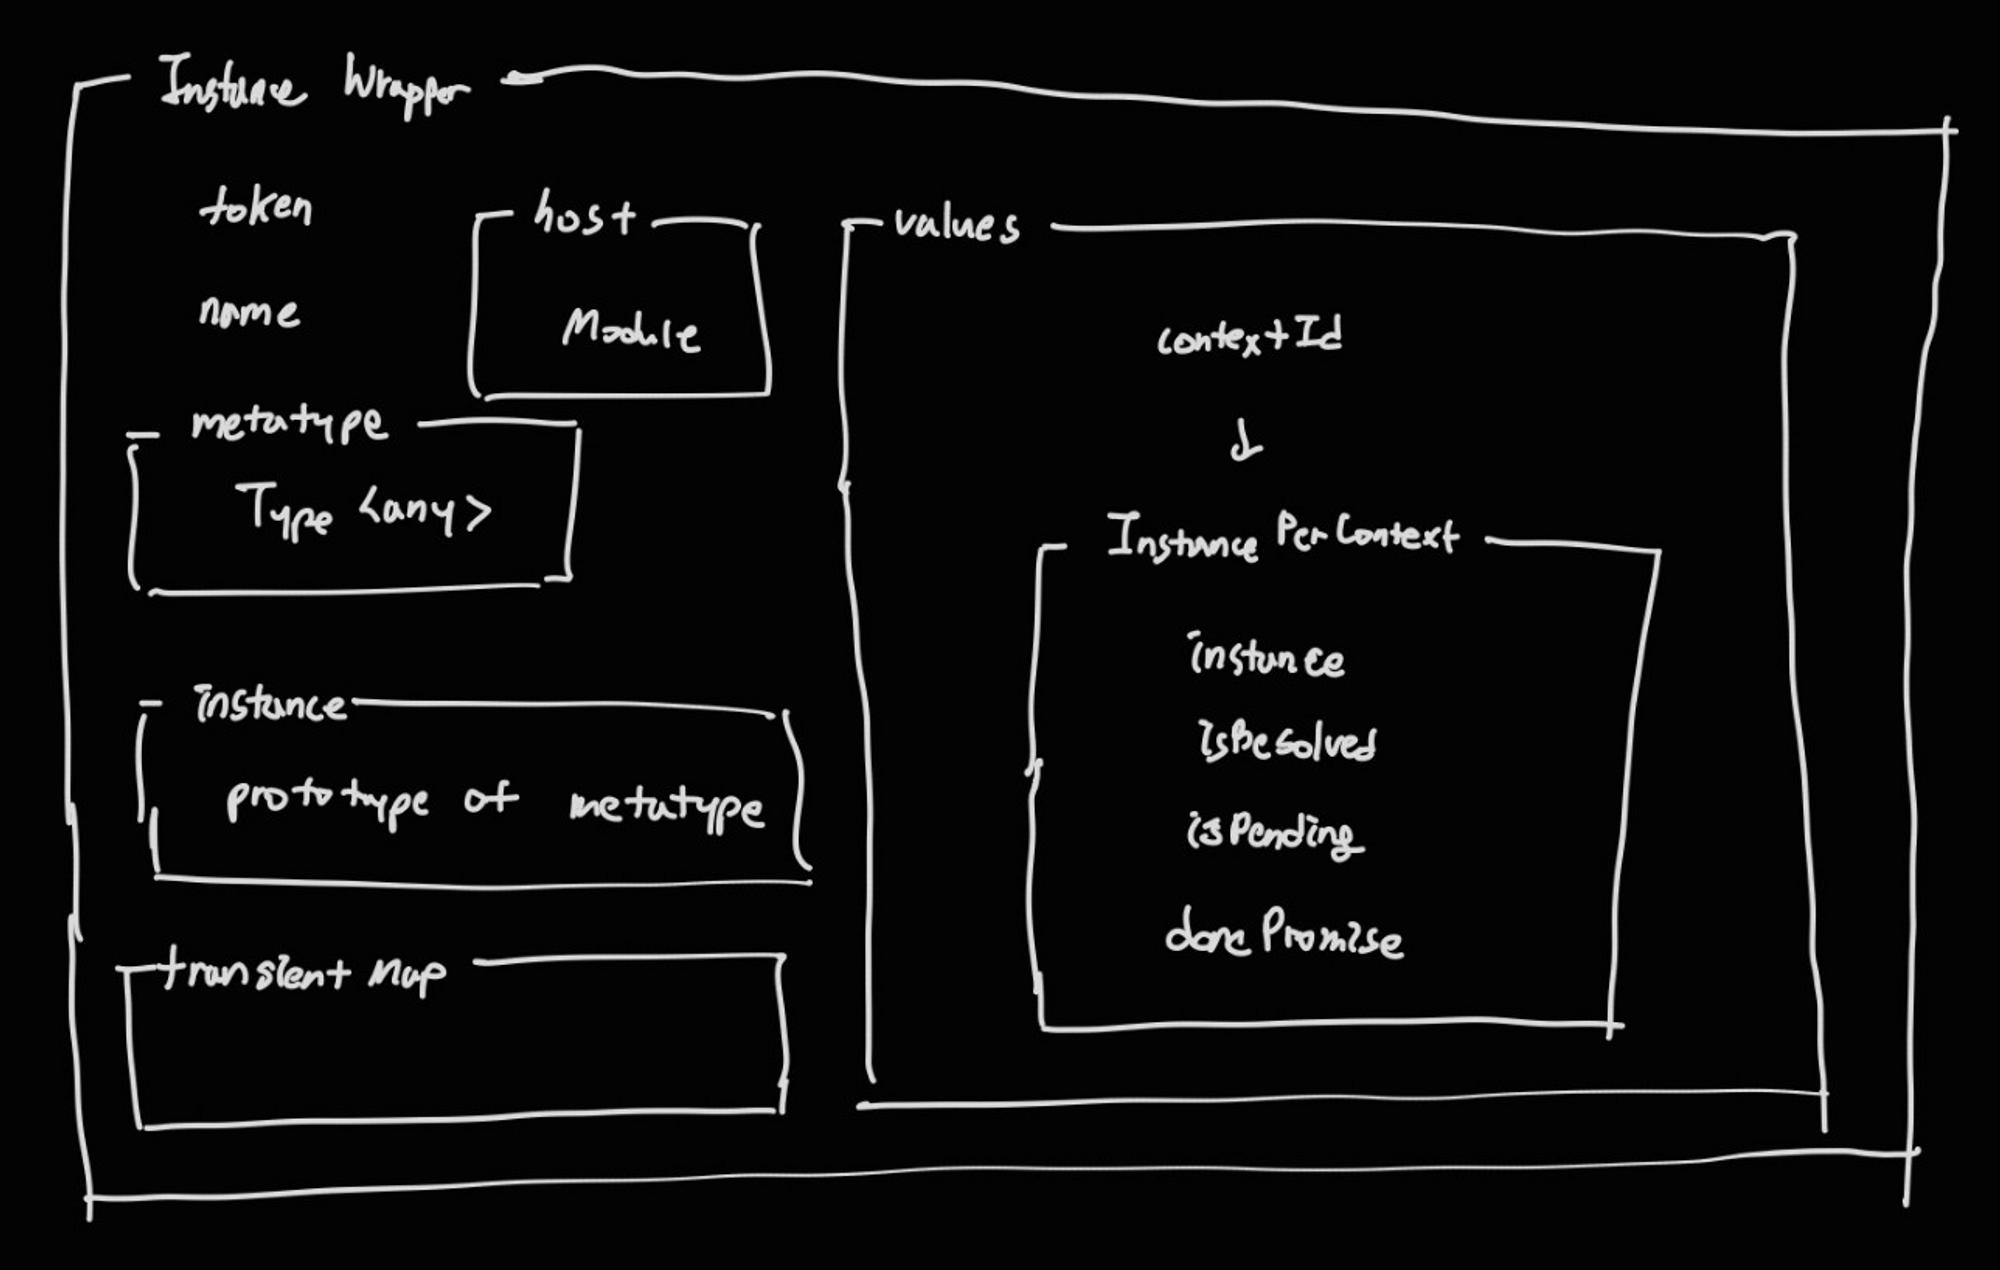 Instance Wrapper
token
name
host
Module
metatype
Type <any>
instance
prototype of metatype
transient Map
values
contextId
Instance PerContext
instance
isResolved
isPending
donePromise